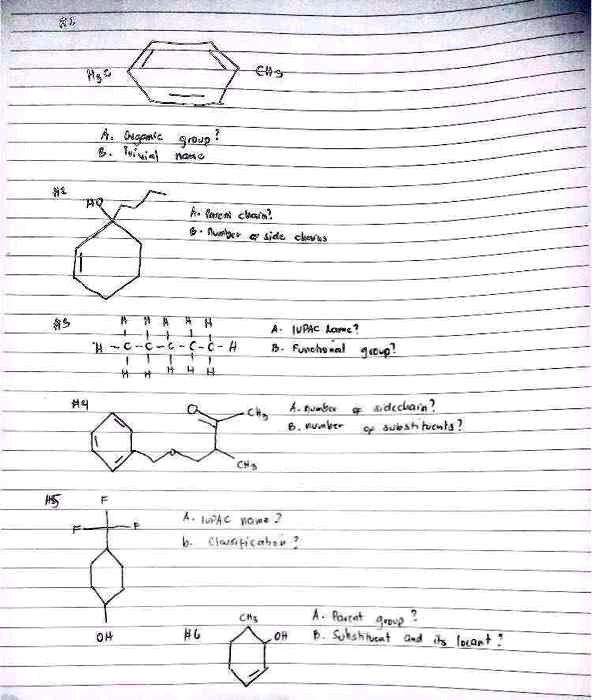 #1
H3C
CH3
A. Organic group?
B. Trivial name
#2
HO
A. Parent chain?
B. Number of side chains
#3
H H H H H
H - C - C - C - C - C - H
H H H H H
A. IUPAC Name?
B. Functional group?
#4
O
CH3
O
CH3
A. number of sidechain?
B. number of substituents?
#5
F
F F
OH
A. IUPAC name?
b. Classification?
#6
CH3
OH
A. Parent group?
B. Substituent and its locant?